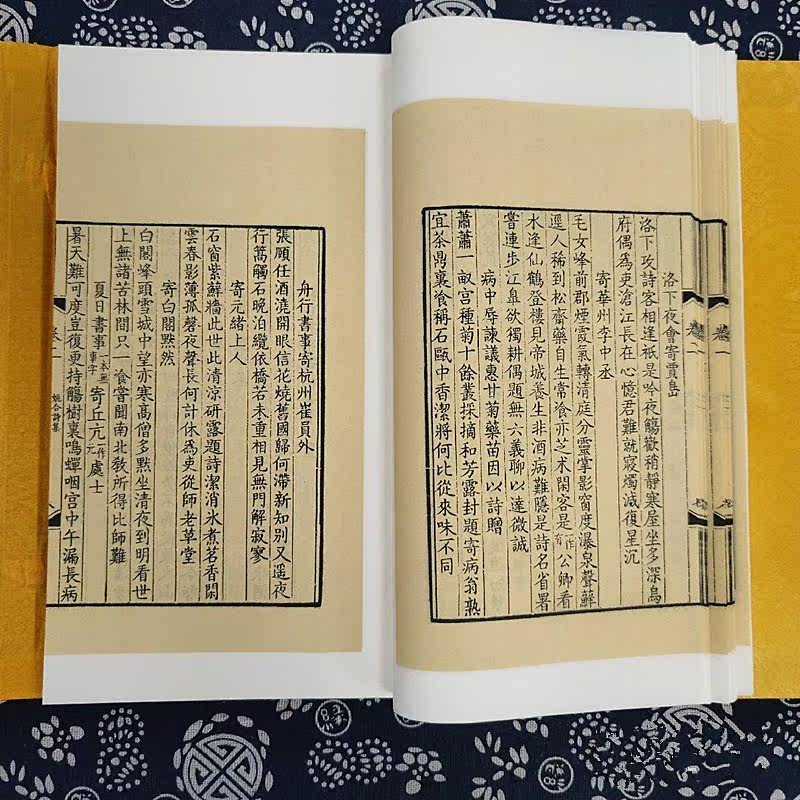 洛下夜會寄賈島
洛下攻詩客相逢祇是吟夜觴歡稍靜寒屋坐多深烏
府偶爲吏滄江長在心憶君難就寢燭滅復星沉
寄華州李中丞
毛女峰前郡煙霞氣轉清庭分靈掌影窗度瀑泉聲蘚
逕人稀到松齋藥自生常飡亦芝术閑客是一作有公卿看
水逢仙鶴登樓見帝城養生非酒病難隱是詩名省署
嘗連步江臯欲獨耕偶題無六義聊以達微誠
病中辱諫議惠甘菊藥苗因以詩贈
蕭蕭一畝宮種菊十餘叢採摘和芳露封題寄病翁熟
宜茶鼎裏飡稱石甌中香潔將何比從來味不同
卷一
卷二
舟行書事寄杭州崔員外
張頎任酒澆開眼信花燒舊國歸何滯新知別又遥夜
行篙觸石晚泊纜依橋若未重相見無門解寂寥
寄元緒上人
石窗紫蘚牆此世此清涼研露題詩潔消氷煮茗香閑
雲春影薄孤磬夜聲長何計休爲吏從師老草堂
寄白閣黙然
白閣峰頭雪城中望亦寒高僧多黙坐清夜到明看世
上無諸苦林間只一飡嘗聞南北教所得比師難
夏日書事一本無事字寄丘亢一作元處士
暑天難可度豈復更持觴樹裏鳴蟬咽宮中午漏長病
姚合詩集